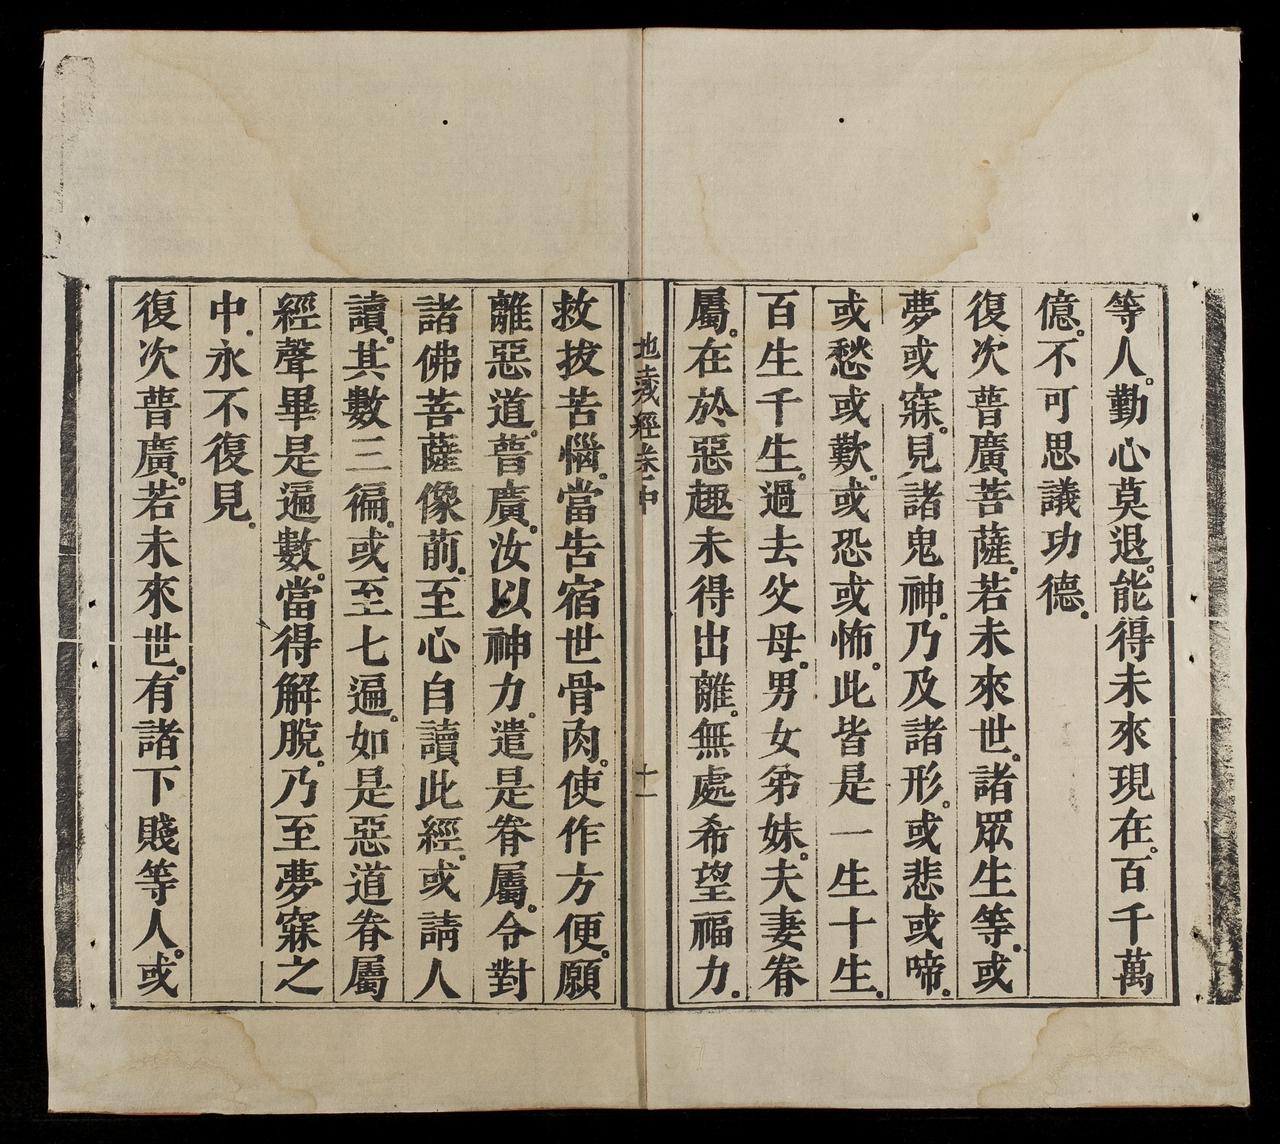 等人。勤心莫退。能得未來現在。百千萬
億。不可思議功德。
復次普廣菩薩。若未來世。諸眾生等。或
夢或寐。見諸鬼神。乃及諸形。或悲或啼。
或愁或歎。或恐或怖。此皆是一生十生。
百生千生。過去父母。男女弟妹。夫妻眷
屬。在於惡趣未得出離。無處希望福力。
地藏經卷中
十一
救拔苦惱。當告宿世骨肉。使作方便。願
離惡道。普廣。汝以神力。遣是眷屬。令對
諸佛菩薩像前。至心自讀此經。或請人
讀。其數三徧。或至七遍。如是惡道眷屬
經聲畢是遍數。當得解脫。乃至夢寐之
中。永不復見。
復次普廣。若未來世。有諸下賤等人。或